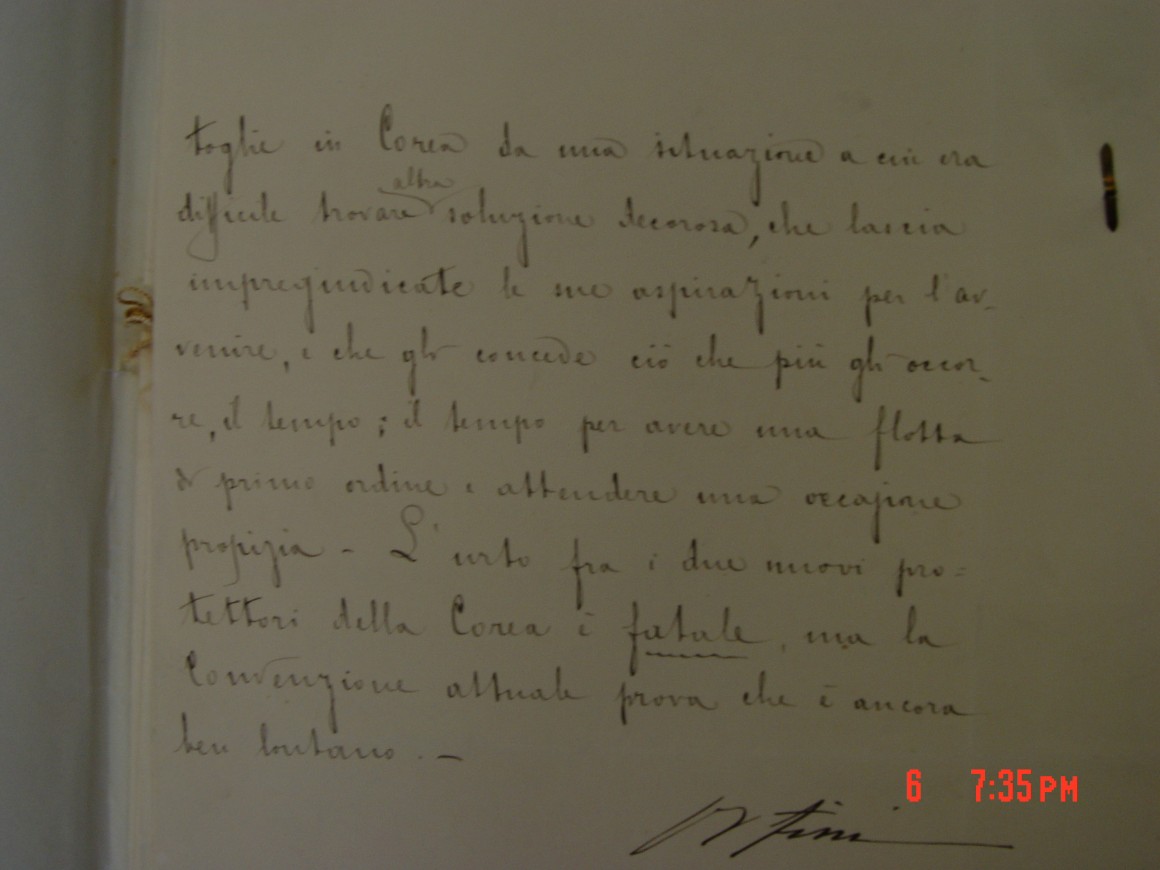 toglie in Corea da una situazione a cui era
altra
difficile trovare soluzione decorosa, che lascia
impregiudicate le sue aspirazioni per l'av-
venire, e che gli concede ciò che più gli occor-
re, il tempo; il tempo per avere una flotta
di primo ordine e attendere una occasione
propizia - L'urto fra i due nuovi pro=
tettori della Corea è fatale, ma la
Convenzione attuale prova che è ancora
ben lontano. -
6 7:35 PM